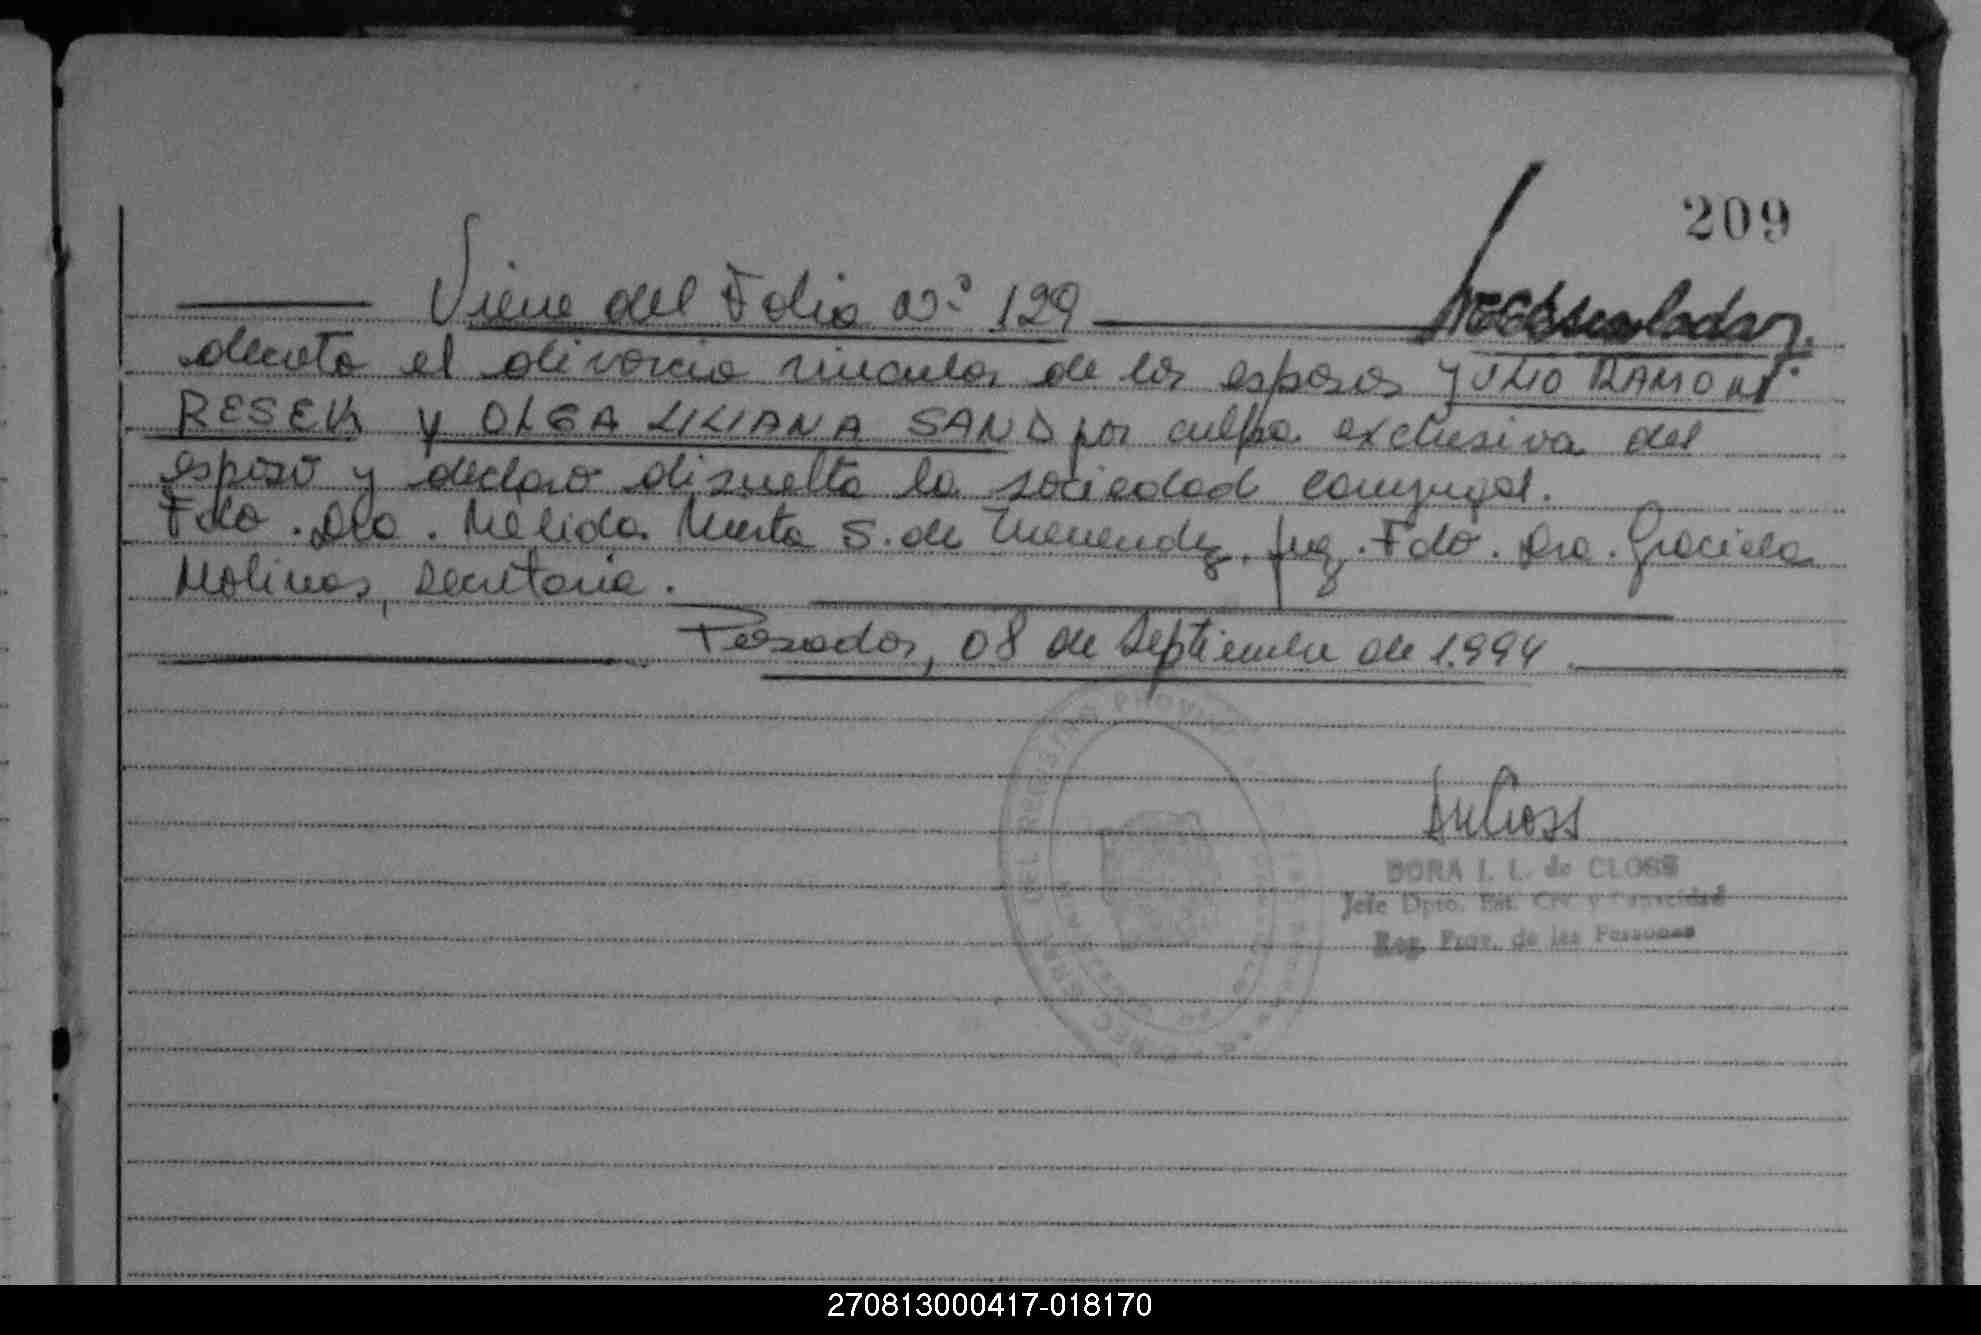 209
Viene del Folio Nº 129
decreto el divorcio vincular de los esposos JULIO RAMON
RESEK y OLGA LILIANA SAND por culpa exclusiva del
esposo y declaro disuelta la sociedad conyugal.
Fdo. Dra. Mélida Mirta S. de Menendez, Juez. Fdo. Dra. Graciela
Molinas, Secretaria.
Posadas, 08 de Septiembre de 1.994
DORA I. L. de CLOSS
Jefe Dpto. Est. Civ. y Capacidad
Reg. Prov. de las Personas
DEL REGISTRO PROVINC
270813000417-018170